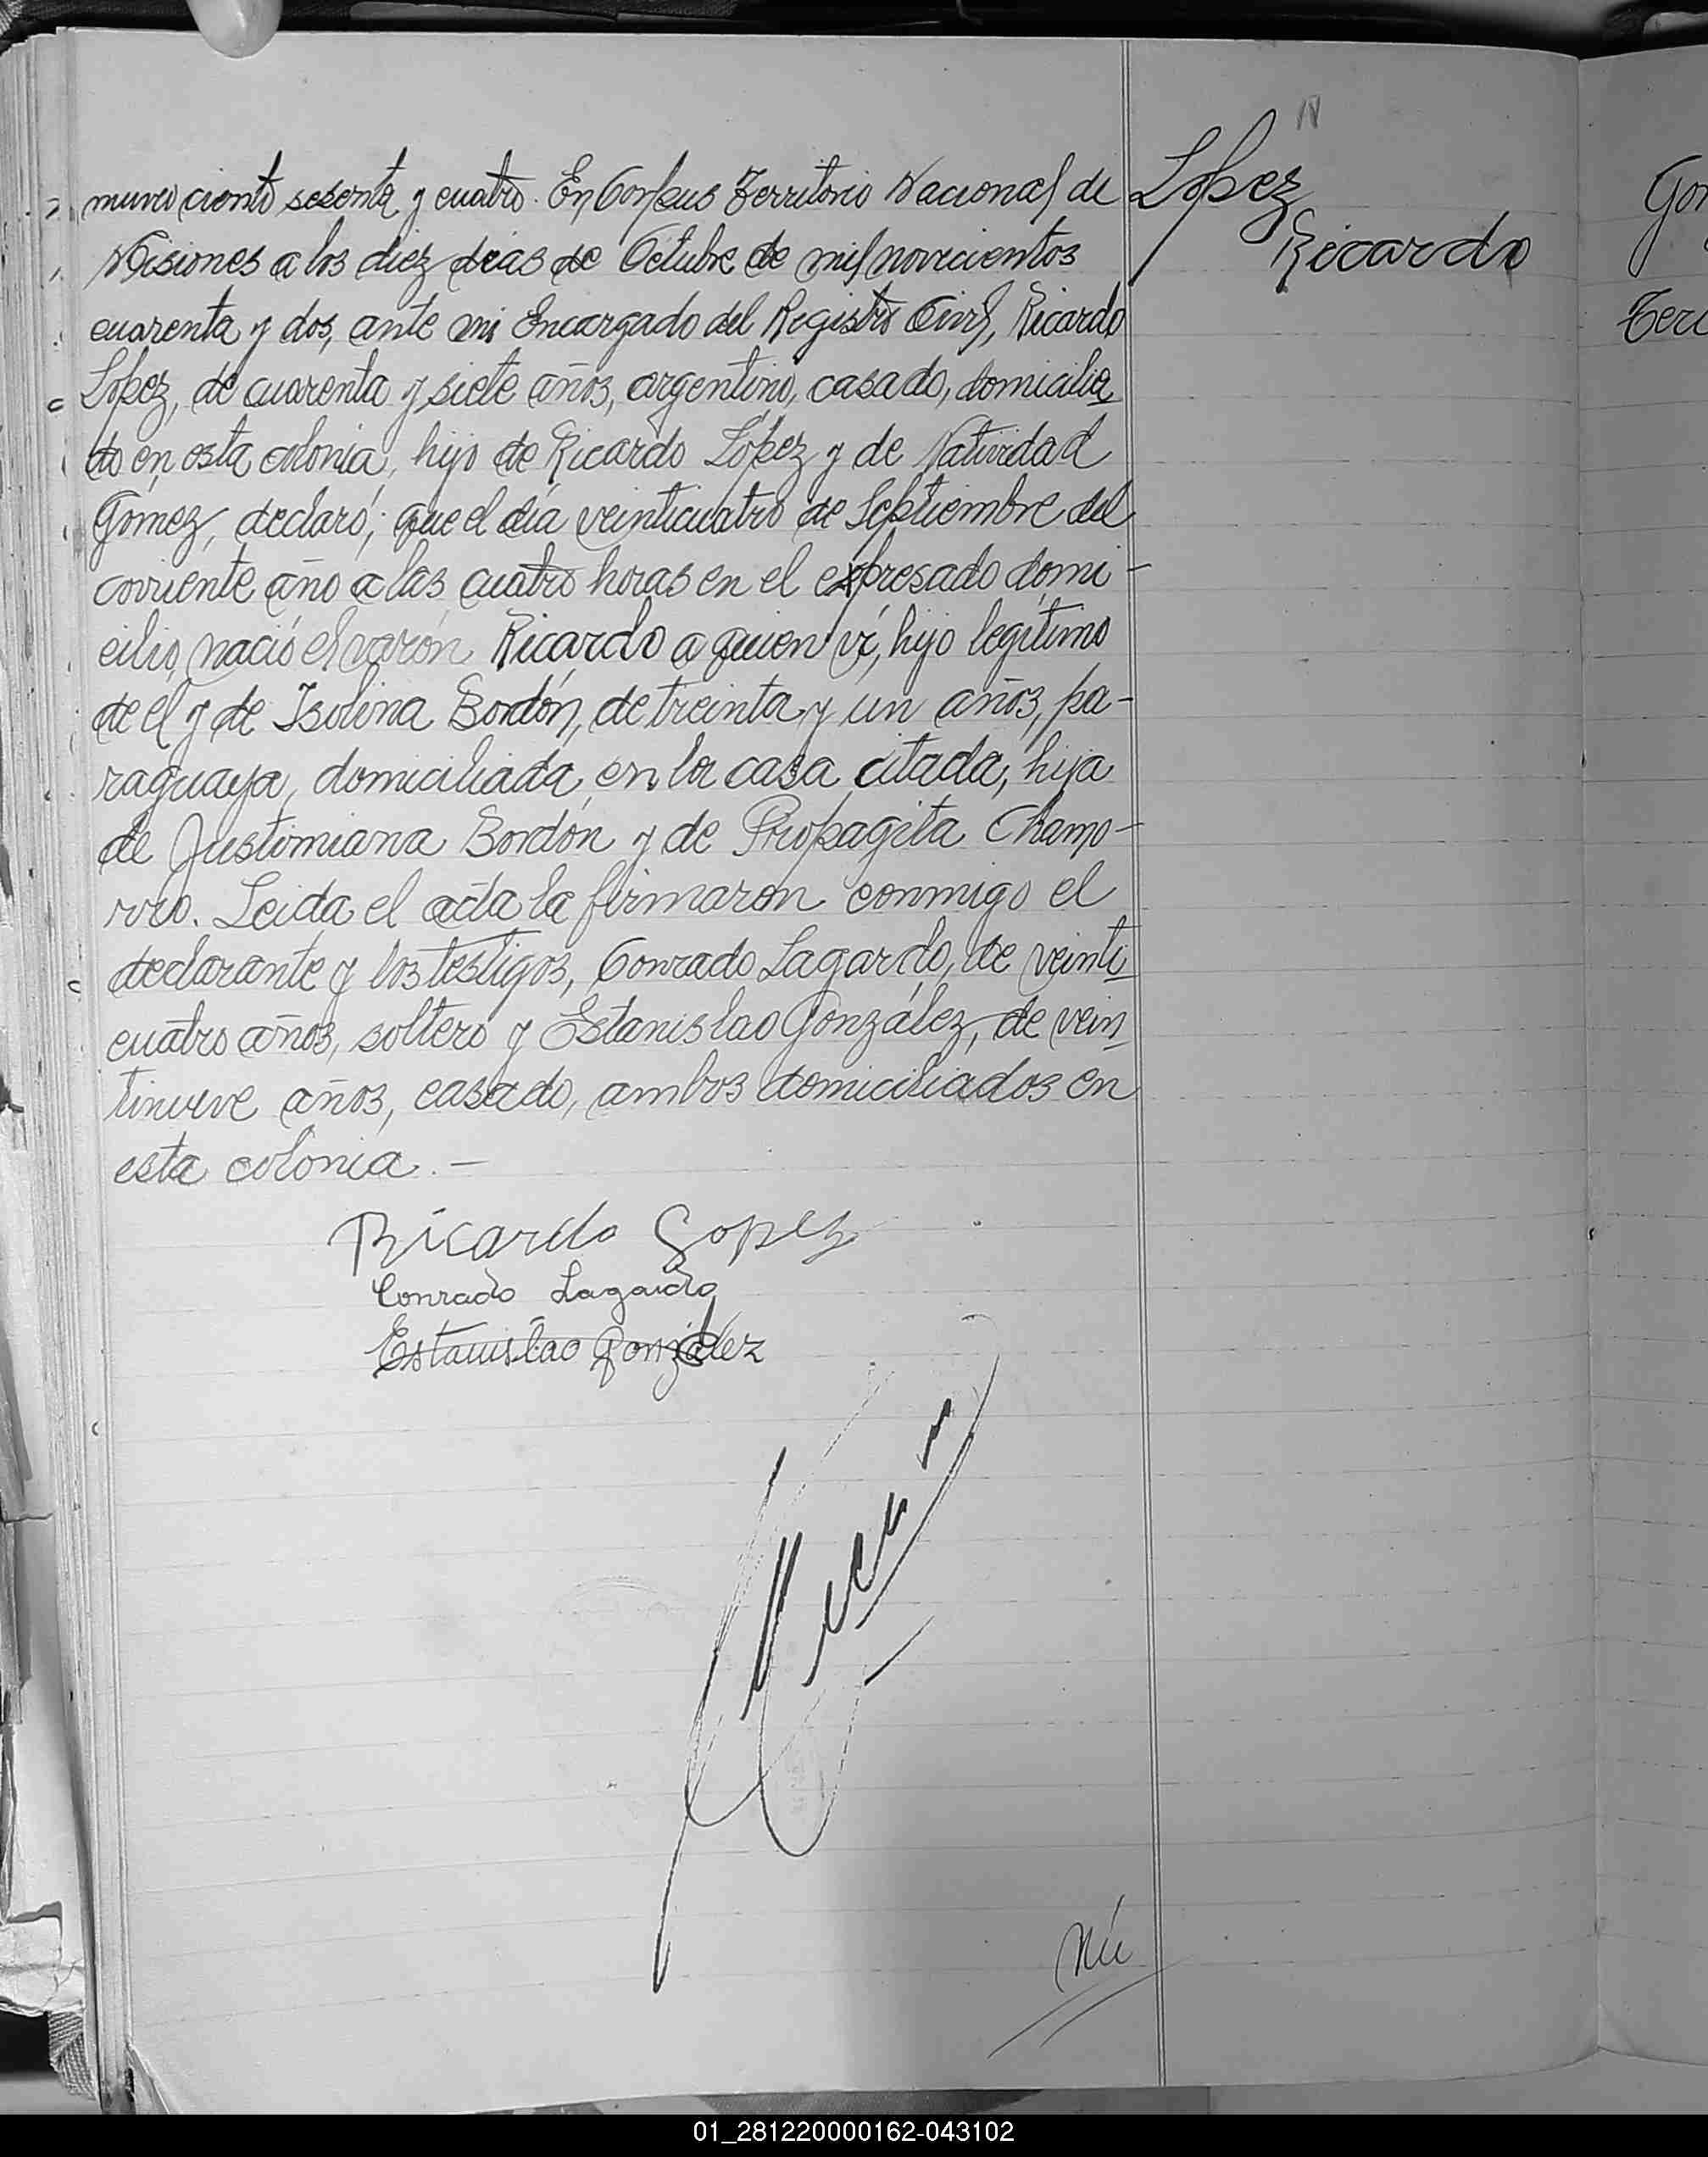 mero ciento sesenta y cuatro. En Corpus Territorio Nacional de
Misiones a los diez dias de Octubre de mil novecientos
cuarenta y dos, ante mi Encargado del Registro Civil, Ricardo
López, de cuarenta y siete años, argentino, casado, domicilia
do en esta colonia, hijo de Ricardo López y de Natividad
Gómez, declaró; que el día veinticuatro de Septiembre del
corriente año a las cuatro horas en el expresado domi-
cilio, nació el varón Ricardo a quien ví, hijo legítimo
de el y de Isolina Bordón, de treinta y un años, pa-
raguaya, domiciliada en la casa citada, hija
de Justimiana Bordón y de Propagita Chamo-
rro. Leida el acta la firmaron conmigo el
declarante y los testigos, Conrado Lagardo, de veinti
cuatro años, soltero y Estanislao González, de vein
tinueve años, casado, ambos domiciliados en
esta colonia.-
López
Ricardo
Ricardo Lopez
Conrado Lagardo
Estanislao González
Nú
Gon
01_281220000162-043102